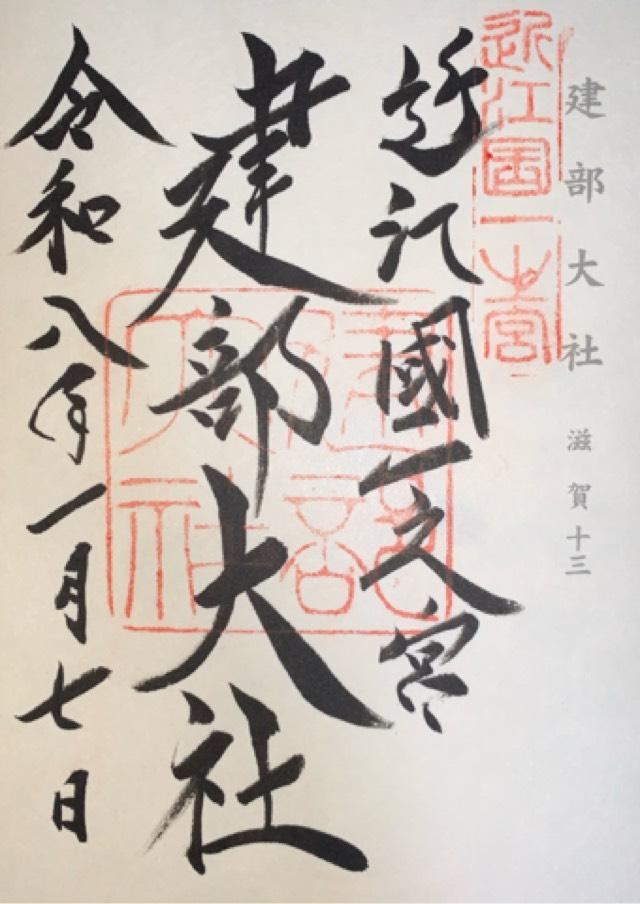 建部大社 滋賀十三
近江國一之宮
近江國一之宮
建部大社
建部大社
令和八年一月七日